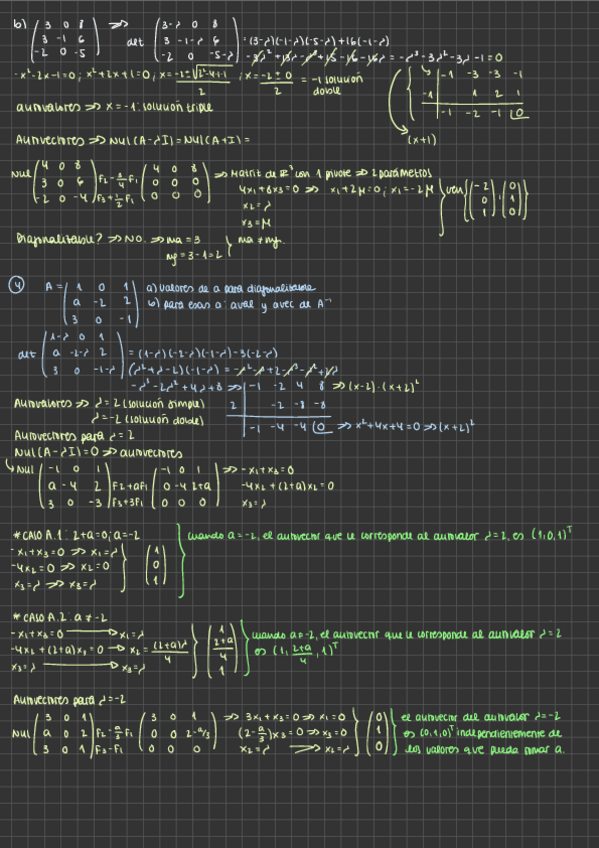 b) ( 3 0 8 ; 3 -1 6 ; -2 0 -5 ) ⇒ det ( 3-λ 0 8 ; 3 -1-λ 6 ; -2 0 -5-λ ) = (3-λ)(-1-λ)(-5-λ)+16(-1-λ)
= -λ³-3λ²-3λ-1=0
-x²-2x-1=0; x²+2x+1=0; x = (-2±√(2²-4·1))/2; x = (-2±0)/2 = -1 solución doble
-1 -3 -3 -1
-1 | 1 2 1
-1 -2 -1 |0
(x+1)
autovalores ⇒ x=-1: solución triple
Autovectores ⇒ Nul(A-λI)=Nul(A+I)=
Nul ( 4 0 8 ; 3 0 6 ; -2 0 -4 ) F2-3/4F1 F3+1/2F1 ( 4 0 8 ; 0 0 0 ; 0 0 0 ) ⇒ Matriz de ℝ³ con 1 pivote ⇒ 2 parámetros
4x1+8x3=0 ⇒ x1+2μ=0; x1=-2μ
x2=λ
x3=μ
gen { ( -2 ; 0 ; 1 ) , ( 0 ; 1 ; 0 ) }
Diagonalizable? ⇒ NO. ⇒ ma=3
mg=3-1=2 } ma≠mg.
4 A= ( 1 0 1 ; a -2 2 ; 3 0 -1 ) a) valores de a para diagonalizable
b) para esas a: aval y avec de A⁻¹
det ( 1-λ 0 1 ; a -2-λ 2 ; 3 0 -1-λ ) = (1-λ)(-2-λ)(-1-λ)-3(-2-λ)
(λ²+λ-2)(-1-λ) = -λ²-λ+2-λ³-λ²+2λ
-λ³-2λ²+4λ+8 ⇒ | -1 -2 4 8 ⇒ (x-2)·(x+2)²
2 | -2 -8 -8
-1 -4 -4 |0 ⇒ x²+4x+4=0 ⇒ (x+2)²
Autovalores ⇒ λ=2 (solución simple)
λ=-2 (solución doble)
Autovectores para λ=2
Nul(A-λI)=0 ⇒ autovectores
Nul ( -1 0 1 ; a -4 2 ; 3 0 -3 ) F2+aF1 F3+3F1 ( -1 0 1 ; 0 -4 2+a ; 0 0 0 ) ⇒ -x1+x3=0
-4x2+(2+a)x2=0
x3=λ
* CASO A.1: 2+a=0; a=-2
-x1+x3=0 ⇒ x1=λ
-4x2=0 ⇒ x2=0
x3=λ ⇒ x3=λ
( 1 ; 0 ; 1 )
cuando a=-2, el autovector que le corresponde al autovalor λ=2, es (1,0,1)ᵀ
* CASO A.2: a≠-2
-x1+x3=0 → x1=λ
-4x2+(2+a)x3=0 → x2=(2+a)λ/4
x3=λ → x3=λ
( 1 ; 2+a/4 ; 1 )
cuando a≠-2, el autovector que le corresponde al autovalor λ=2
es (1, 2+a/4, 1)ᵀ
Autovectores para λ=-2
Nul ( 3 0 1 ; a 0 2 ; 3 0 1 ) F2-a/3F1 F3-F1 ( 3 0 1 ; 0 0 2-a/3 ; 0 0 0 ) ⇒ 3x1+x3=0 ⇒ x1=0
(2-a/3)x3=0 ⇒ x3=0
x2=λ ⇒ x2=λ
( 0 ; 1 ; 0 )
el autovector del autovalor λ=-2
es (0,1,0)ᵀ independientemente de
los valores que pueda tomar a.